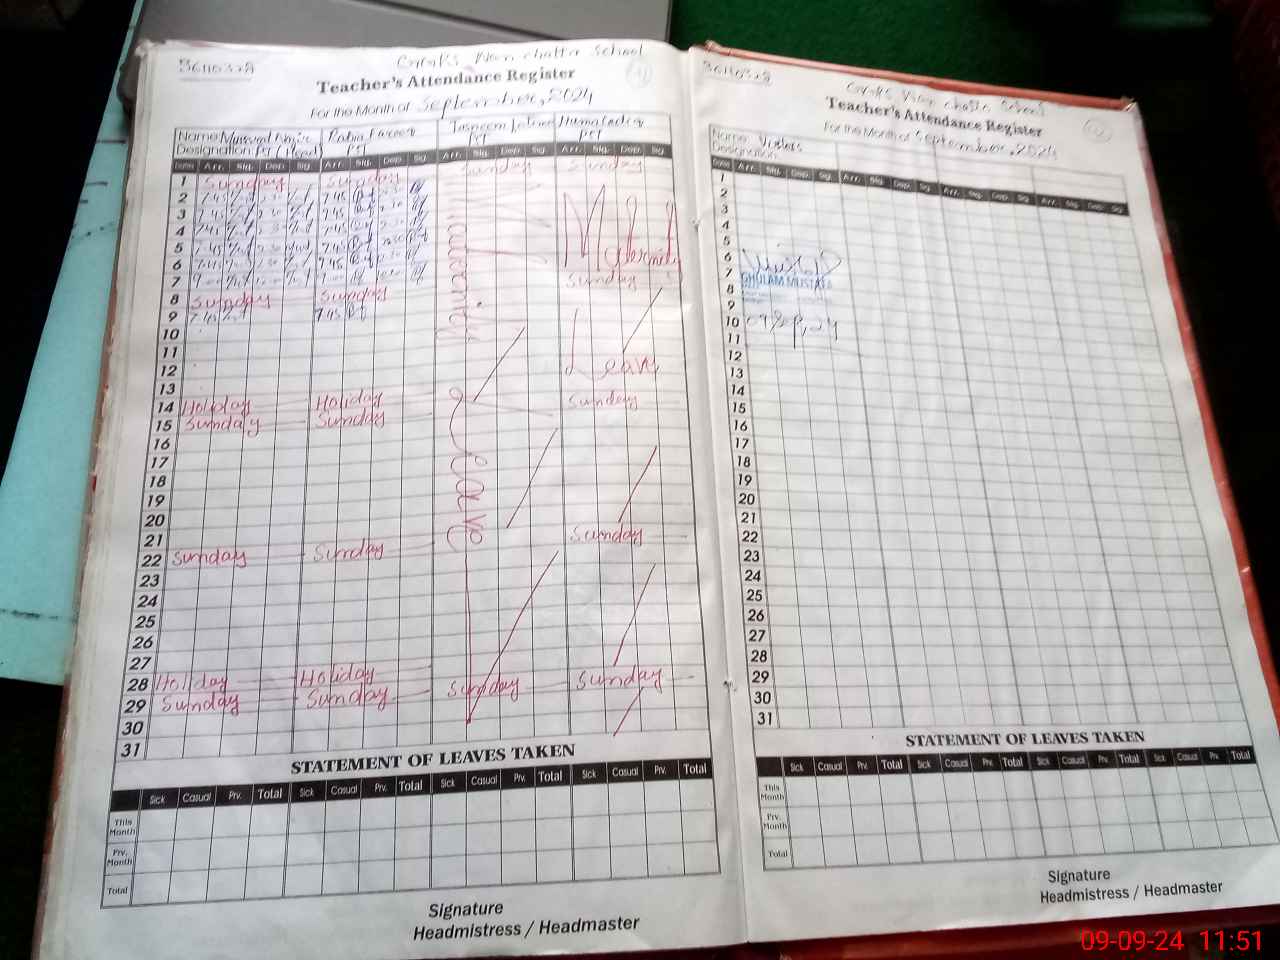 36110328
School
Teacher's Attendance Register
For the Month of September, 2024
Name
Designation PST (Head) PST PST PST
Date Arr. Sig. Dep. Sig. Arr. Sig. Dep. Sig. Arr. Sig. Dep. Sig. Arr. Sig. Dep. Sig.
1 Sunday Sunday Sunday Sunday
2 7:45 2:30 7:45 2:30
3 7:45 2:30 7:45 2:30
4 7:45 2:30 7:45 2:30
5 7:45 2:30 7:45 2:30
6 7:45 7:45
7
8 Sunday Sunday Sunday
9 7:45 7:45
10
11
12
13
14 Holiday Holiday
15 Sunday Sunday Sunday
16
17
18
19
20
21
22 Sunday Sunday Sunday
23
24
25
26
27
28 Holiday Holiday
29 Sunday Sunday Sunday Sunday
30
31
Maternity Leave
Maternity
Leave
STATEMENT OF LEAVES TAKEN
Sick Casual Prv. Total Sick Casual Prv. Total Sick Casual Prv. Total Sick Casual Prv. Total
This Month
Prv. Month
Total
Signature
Headmistress / Headmaster
36110328
School
Teacher's Attendance Register
For the Month of September, 2024
Name Visitors
Designation
Date Arr. Sig. Dep. Sig. Arr. Sig. Dep. Sig. Arr. Sig. Dep. Sig. Arr. Sig. Dep. Sig.
1
2
3
4
5
6
7 GHULAM MUSTAFA
8
9
10
11
12
13
14
15
16
17
18
19
20
21
22
23
24
25
26
27
28
29
30
31
STATEMENT OF LEAVES TAKEN
Sick Casual Prv. Total Sick Casual Prv. Total Sick Casual Prv. Total Sick Casual Prv. Total
This Month
Prv. Month
Total
Signature
Headmistress / Headmaster
09-09-24 11:51